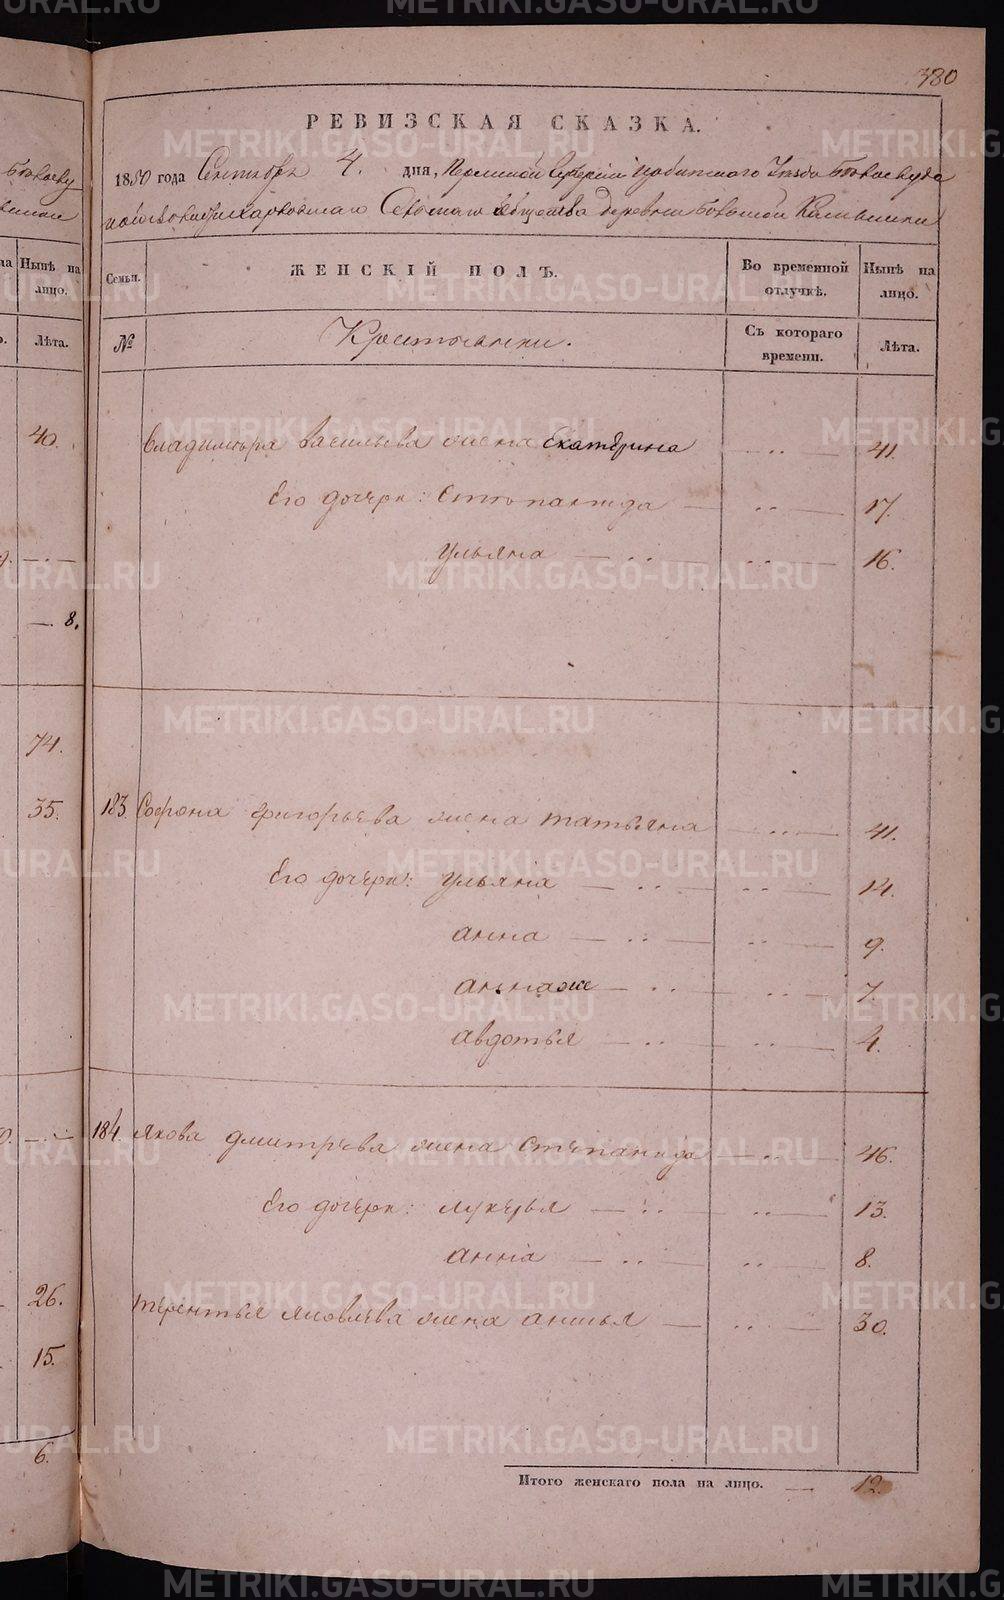 380
РЕВИЗСКАЯ СКАЗКА.
1850 года Сентября 4. дня, Пермской Губернии Ирбитскаго Уѣзда
Сельскаго Общества деревни Большой
Семьи.
ЖЕНСКІЙ ПОЛЪ.
Во временной отлучкѣ.
Нынѣ на лицо.
№
Крестьянки.
Съ котораго времени.
Лѣта.
Владимира Васильева жена Екатерина 41.
Его дочери: Степанида 17.
Ульяна 16.
183. Софрона Григорьева жена татьяна 41.
Его дочери: Ульяна 14.
анна 9.
аннаже 7.
авдотья 4.
184. Якова дмитрева жена Степанида 46.
Его дочери: лукерья 13.
анна 8.
терентья яковлева жена анисья 30.
Итого женскаго пола на лицо. 12.
Нынѣ на лицо.
Лѣта.
40.
8.
74.
35.
26.
15.
6.
METRIKI.GASO-URAL.RU